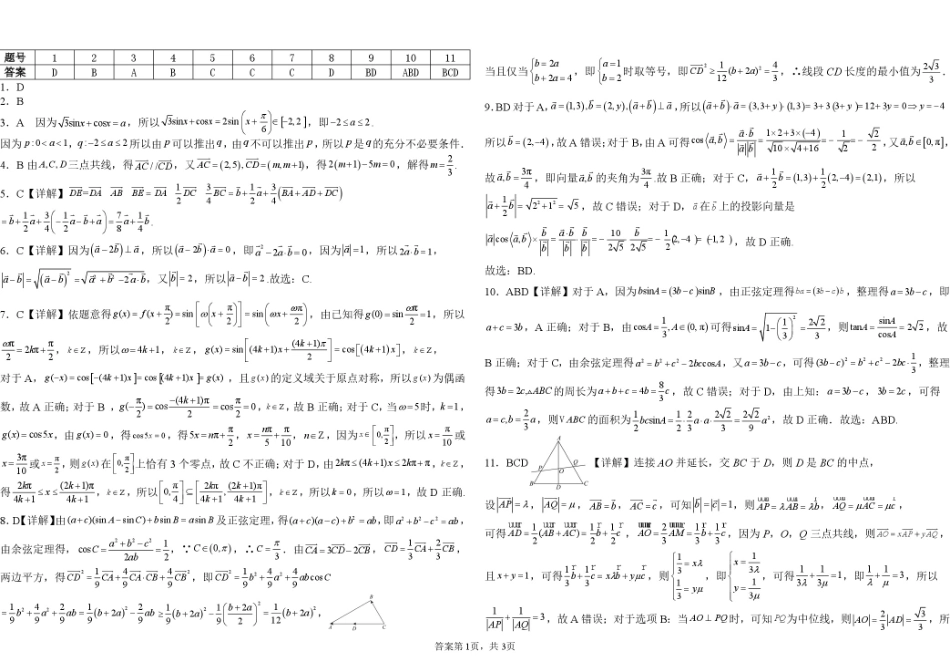 题号 1 2 3 4 5 6 7 8 9 10 11
答案 D B A B C C C D BD ABD BCD
1. D
2. B
3. A 因为√3sinx+cosx=a，所以√3sinx+cosx=2sin(x+π/6)∈[-2,2]，即-2≤a≤2.
因为p:0<a<1，q:-2≤a≤2所以由p可以推出q，由q不可以推出p，所以p是q的充分不必要条件.
4. B 由A,C,D三点共线，得AC//CD，又AC=(2,5),CD=(m,m+1)，得2(m+1)-5m=0，解得m=2/3.
5. C【详解】DE=DA AB BE=DA 1/2 DC 3/4 BC=b+1/2 a+3/4(BA+AD+DC)
=b+1/2 a+3/4(1/2 a-b+a)=7/8 a+1/4 b.
6. C【详解】因为(a-2b)⊥a，所以(a-2b)·a=0，即a²-2a·b=0，因为|a|=1，所以2a·b=1，
|a-b|=√(a-b)²=√a²+b²-2a·b，又|b|=2，所以|a-b|=2.故选：C.
7. C【详解】依题意得g(x)=f(x+π/2)=sin[ω(x+π/2)]=sin(ωx+ωπ/2)，由已知得g(0)=sin ωπ/2=1，所以
ωπ/2=2kπ+π/2，k∈Z，所以ω=4k+1，k∈Z，g(x)=sin[(4k+1)x+(4k+1)π/2]=cos[(4k+1)x]，k∈Z，
对于A，g(-x)=cos[-(4k+1)x]=cos[(4k+1)x]=g(x)，且g(x)的定义域关于原点对称，所以g(x)为偶函
数，故A正确；对于B，g(-π/2)=cos -(4k+1)π/2=cos π/2=0，k∈Z，故B正确；对于C，当ω=5时，k=1，
g(x)=cos5x，由g(x)=0，得cos5x=0，得5x=nπ+π/2，x=nπ/5+π/10，n∈Z，因为x∈[0,π/2]，所以x=π/10或
x=3π/10或x=π/2，则g(x)在[0,π/2]上恰有3个零点，故C不正确；对于D，由2kπ≤(4k+1)x≤2kπ+π，k∈Z，
得2kπ/4k+1≤x≤(2k+1)π/4k+1，k∈Z，所以[0,π/4]⊆[2kπ/4k+1,(2k+1)π/4k+1]，k∈Z，所以k=0，所以ω=1，故D正确.
8. D【详解】由(a+c)(sinA-sinC)+bsinB=asinB及正弦定理，得(a+c)(a-c)+b²=ab，即a²+b²-c²=ab，
由余弦定理得，cosC=a²+b²-c²/2ab=1/2，∵C∈(0,π)，∴C=π/3. 由CA=3CD-2CB，CD=1/3 CA+2/3 CB，
两边平方，得CD²=1/9 CA²+4/9 CA·CB+4/9 CB²，即CD²=1/9 b²+4/9 a²+4/9 abcosC
=1/9 b²+4/9 a²+2/9 ab=1/9(b+2a)²-2/9 ab≥1/9(b+2a)²-1/9(b+2a/2)²=1/12(b+2a)²，
B
A D C
当且仅当{b=2a b+2a=4，即{a=1 b=2时取等号，即CD²≥1/12(b+2a)²=4/3，∴线段CD长度的最小值为2√3/3.
9. BD对于A，a=(1,3),b=(2,y),(a+b)⊥a，所以(a+b)·a=(3,3+y)·(1,3)=3+3(3+y)=12+3y=0⇒y=-4
所以b=(2,-4)，故A错误；对于B，由A可得cos⟨a,b⟩=a·b/|a||b|=1×2+3×(-4)/√10×√4+16=-1/√2=-√2/2，又⟨a,b⟩∈[0,π]，
故⟨a,b⟩=3π/4，即向量a,b的夹角为3π/4.故B正确；对于C，a+1/2 b=(1,3)+1/2(2,-4)=(2,1)，所以
|a+1/2 b|=√2²+1²=√5，故C错误；对于D，a在b上的投影向量是
|a|cos⟨a,b⟩×b/|b|=a·b/|b|×b/|b|=-10/2√5×b/2√5=-1/2(2,-4)=(-1,2)，故D正确.
故选：BD.
10. ABD【详解】对于A，因为bsinA=(3b-c)sinB，由正弦定理得ba=(3b-c)b，整理得a=3b-c，即
a+c=3b，A正确；对于B，由cosA=1/3,A∈(0,π)可得sinA=√1-(1/3)²=2√2/3，则tanA=sinA/cosA=2√2，故
B正确；对于C，由余弦定理得a²=b²+c²-2bccosA，又a=3b-c，可得(3b-c)²=b²+c²-2bc·1/3，整理
得3b=2c,△ABC的周长为a+b+c=4b=8/3 c，故C错误；对于D，由上知：a=3b-c，3b=2c，可得
a=c,b=2/3 a，则▽ABC的面积为1/2 bcsinA=1/2·2/3 a·a·2√2/3=2√2/9 a²，故D正确.故选：ABD.
11. BCD
A
P O Q
B D C
【详解】连接AO并延长，交BC于D，则D是BC的中点，
设|AP|=λ，|AQ|=μ，AB=b，AC=c，可知|b|=|c|=1，则AP=λAB=λb，AQ=μAC=μc，
可得AD=1/2(AB+AC)=1/2 b+1/2 c，AO=2/3 AM=1/3 b+1/3 c，因为P，O，Q三点共线，则AO=xAP+yAQ，
且x+y=1，可得1/3 b+1/3 c=xλb+yμc，则{1/3=xλ 1/3=yμ，即{x=1/3λ y=1/3μ，可得1/3λ+1/3μ=1，即1/λ+1/μ=3，所以
1/|AP|+1/|AQ|=3，故A错误；对于选项B：当AO⊥PQ时，可知PQ为中位线，则|AO|=2/3|AD|=√3/3，所
答案第1页，共3页